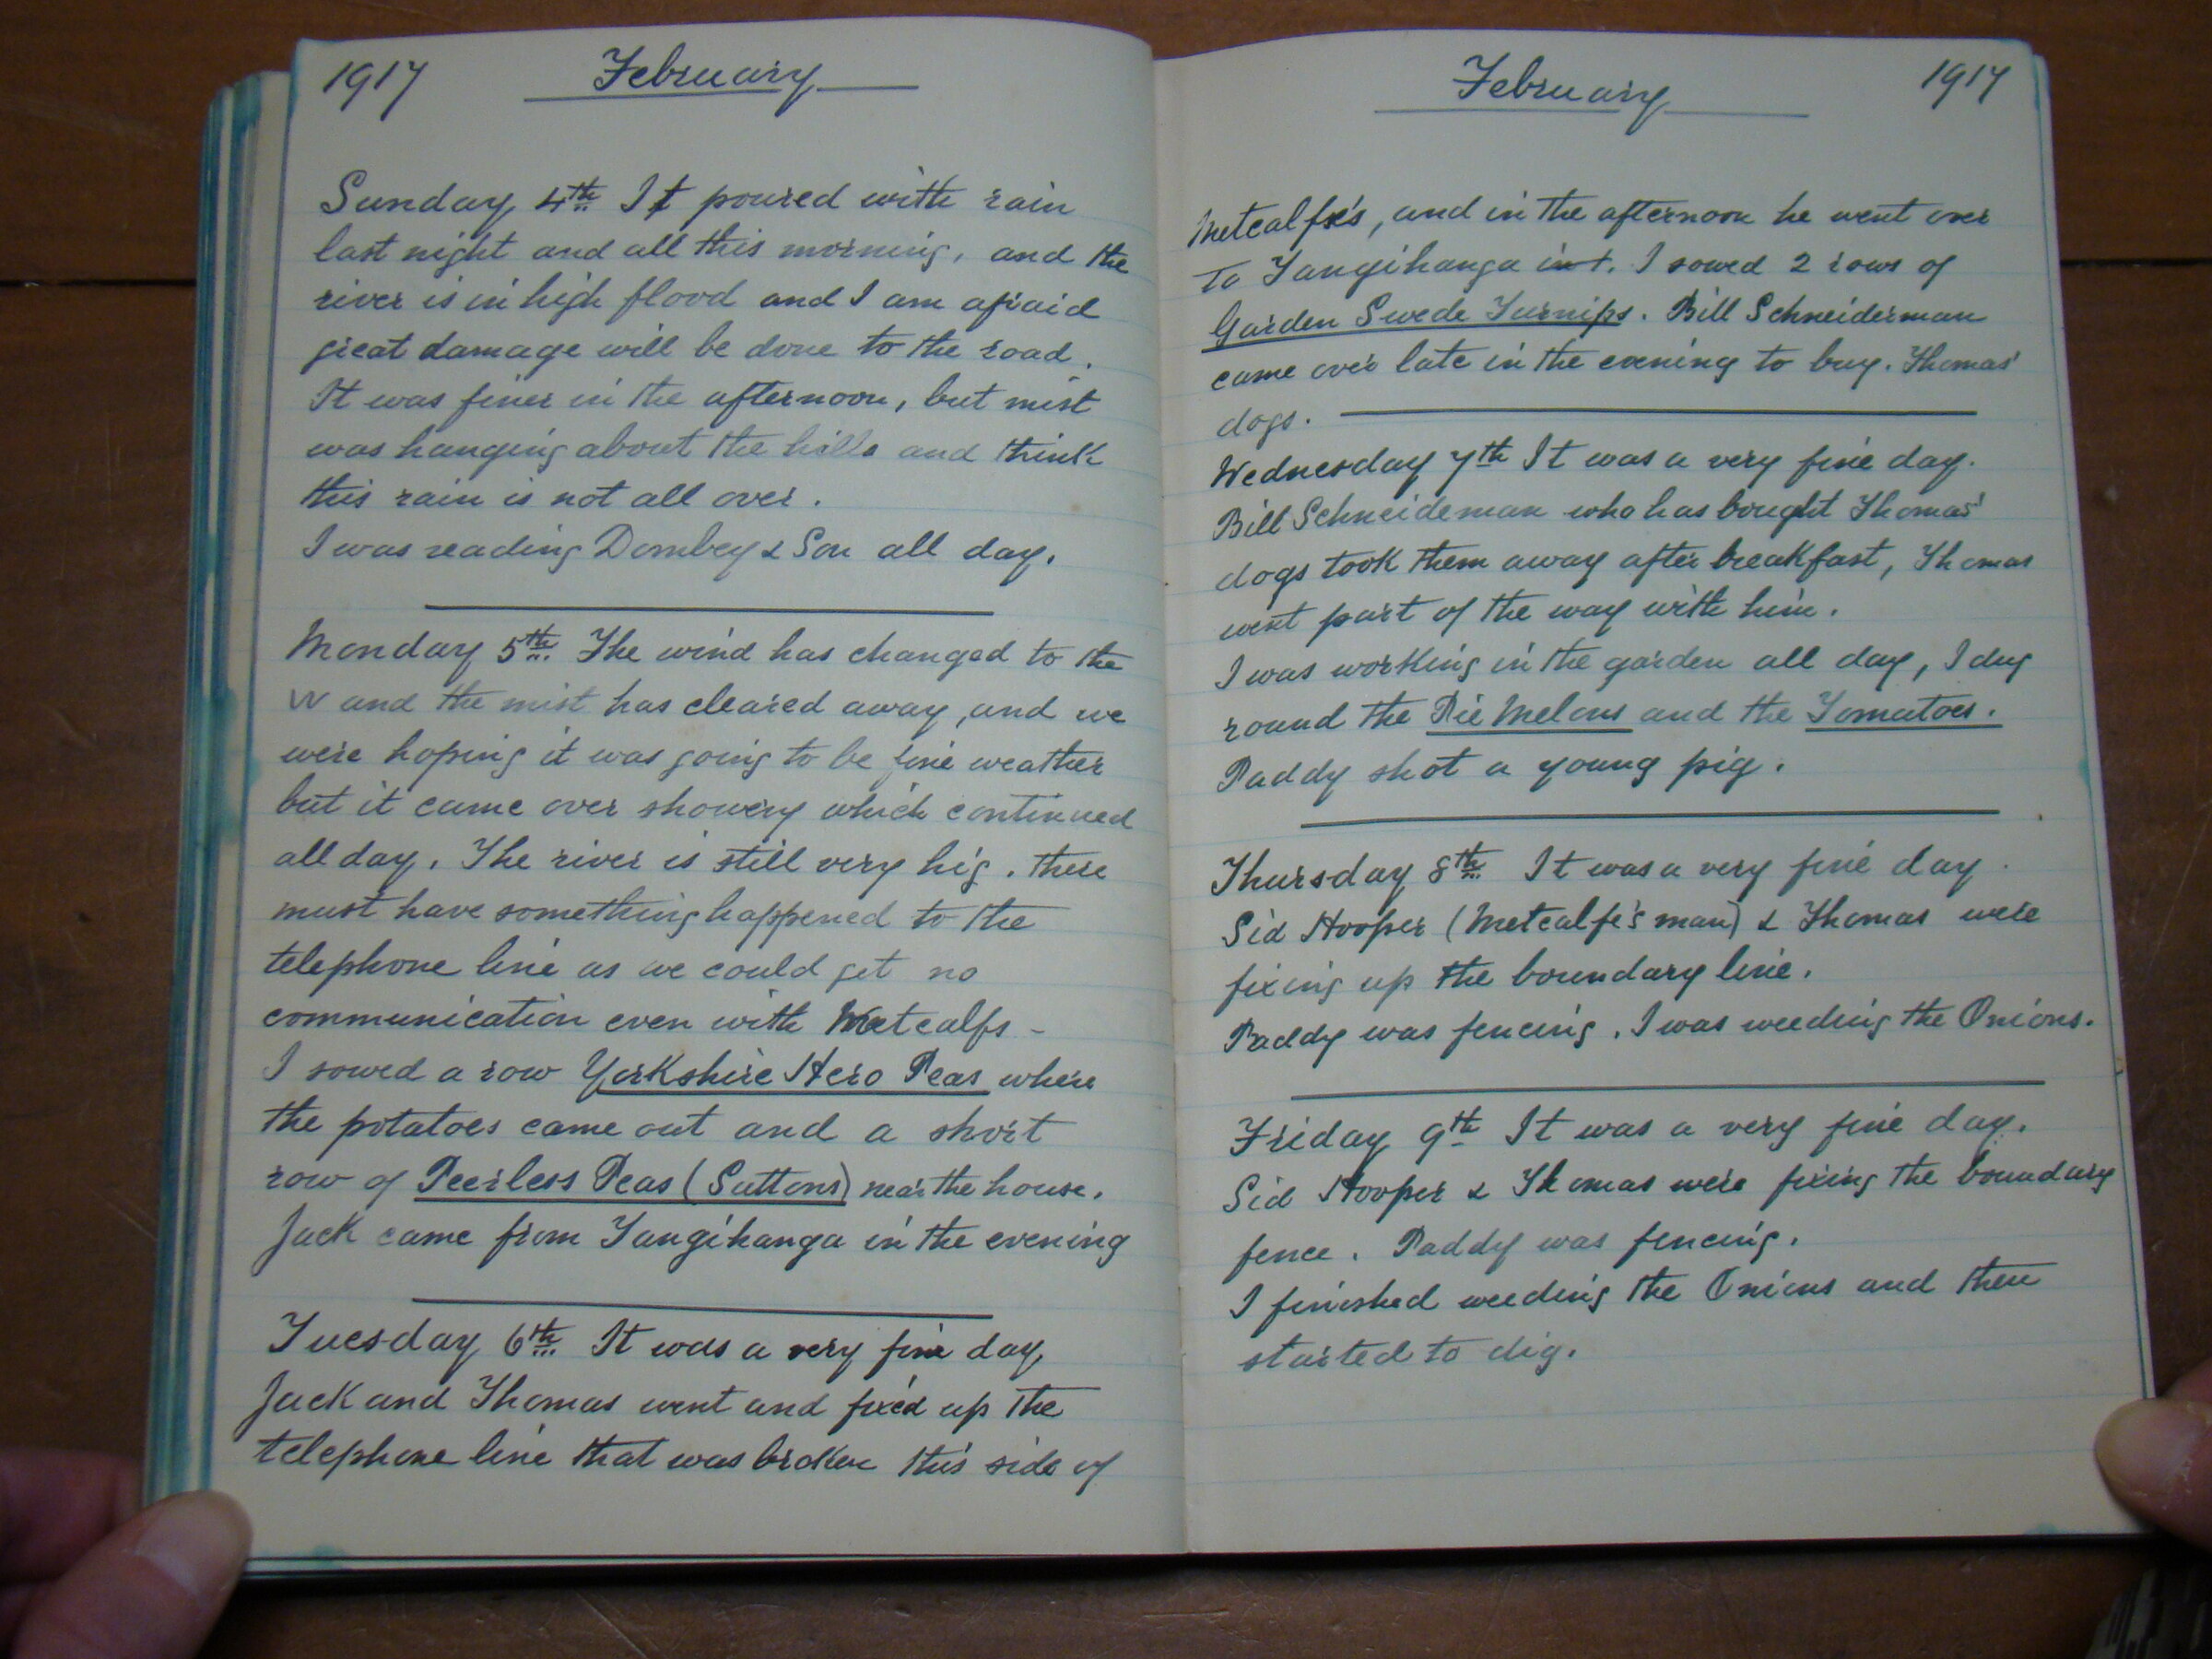 1917 February
Sunday 4th It poured with rain
last night and all this morning, and the
river is in high flood and I am afraid
great damage will be done to the road.
It was finer in the afternoon, but mist
was hanging about the hills and think
this rain is not all over.
I was reading Dombey & Son all day.
Monday 5th The wind has changed to the
W and the mist has cleared away, and we
were hoping it was going to be fine weather
but it came over showery which continued
all day. The river is still very hig. there
must have something happened to the
telephone line as we could get no
communication even with Metcalfs -
I sowed a row Yorkshire Hero Peas where
the potatoes came out and a short
row of Peerless Peas (Suttons) near the house.
Jack came from Tangihanga in the evening
Tuesday 6th It was a very fine day,
Jack and Thomas went and fixed up the
telephone line that was broken this side of
February 1917
Metcalfe's, and in the afternoon he went over
to Tangihanga int. I sowed 2 rows of
Garden Swede Turnips. Bill Schneiderman
came over late in the evening to buy. Thomas'
dogs.
Wednesday 7th It was a very fine day.
Bill Schneideman who has bought Thomas'
dogs took them away after breakfast, Thomas
went part of the way with him.
I was working in the garden all day, I dug
round the Pie Melons and the Tomatoes.
Paddy shot a young pig.
Thursday 8th It was a very fine day.
Sid Hooper (Metcalfe's man) & Thomas were
fixing up the boundary line.
Paddy was fencing. I was weeding the Onions.
Friday 9th It was a very fine day.
Sid Hooper & Thomas were fixing the boundary
fence. Paddy was fencing.
I finished weeding the Onions and then
started to dig.